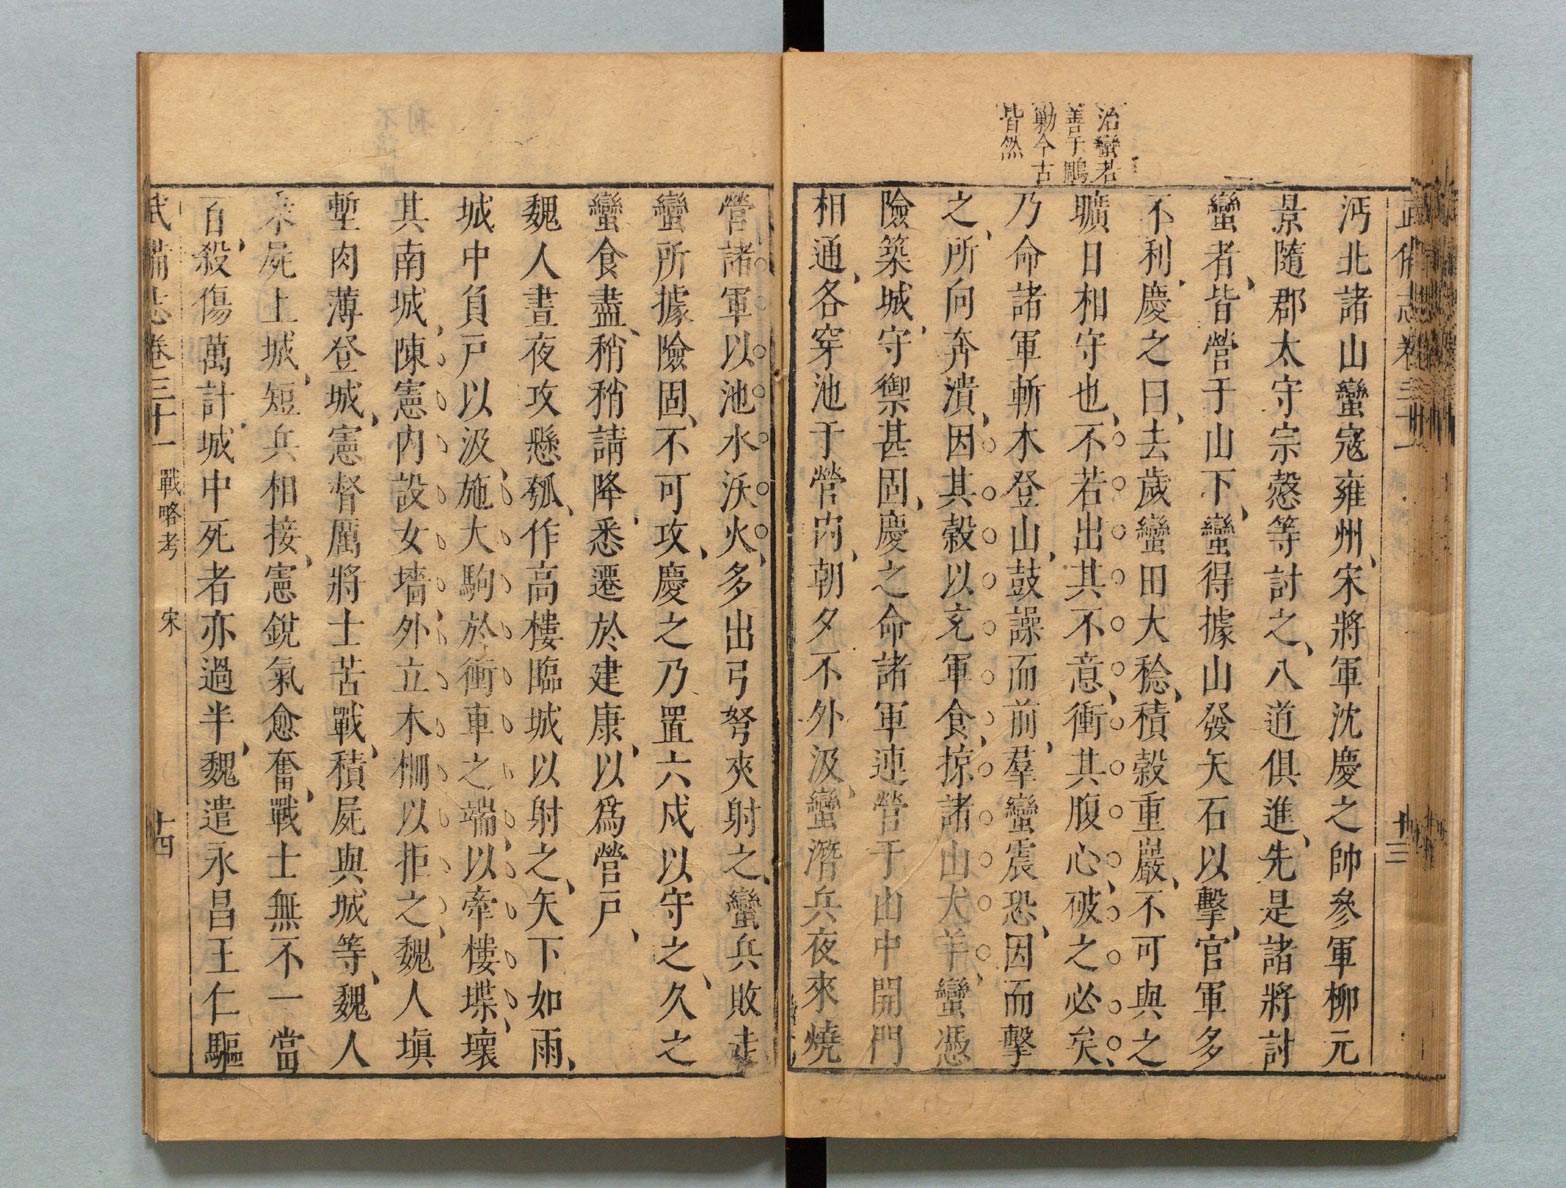 治蠻者
善于鵰
勦今古
皆然
武備志卷三十一
十三
沔北諸山蠻寇雍州宋將軍沈慶之帥參軍柳元
景隨郡太守宗慤等討之八道俱進先是諸將討
蠻者皆營于山下蠻得據山發矢石以擊官軍多
不利慶之曰去歲蠻田大稔積穀重巖不可與之
曠日相守也不若出其不意衝其腹心破之必矣
乃命諸軍斬木登山鼓譟而前羣蠻震恐因而擊
之所向奔潰因其穀以充軍食掠諸山犬羊蠻憑
險築城守禦甚固慶之命諸軍連營于山中開門
相通各穿池于營內朝夕不外汲蠻潛兵夜來燒
營諸軍以池水沃火多出弓弩夾射之蠻兵敗走
蠻所據險固不可攻慶之乃置六戍以守之久之
蠻食盡稍稍請降悉遷於建康以爲營戸
魏人晝夜攻懸瓠作高樓臨城以射之矢下如雨
城中負戸以汲施大駒於衝車之端以牽樓堞壞
其南城陳憲內設女墻外立木柵以拒之魏人塡
塹肉薄登城憲督厲將士苦戰積屍與城等魏人
乘屍上城短兵相接憲銳氣愈奮戰士無不一當
百殺傷萬計城中死者亦過半魏遣永昌王仁驅
武備志卷三十一 戰略考 宋
十四